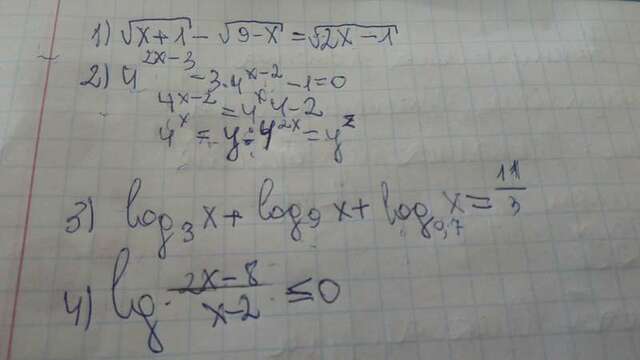 1) √x+1 - √9-x = √2x-1
2) 4^2x-3 - 3·4^x-2 - 1=0
4^x-2 = 4^x 4-2
4^x = y; 4^2x = y^2
3) log_3 x + log_9 x + log_0,7 x = 11/3
4) lg 2x-8/x-2 ≤ 0